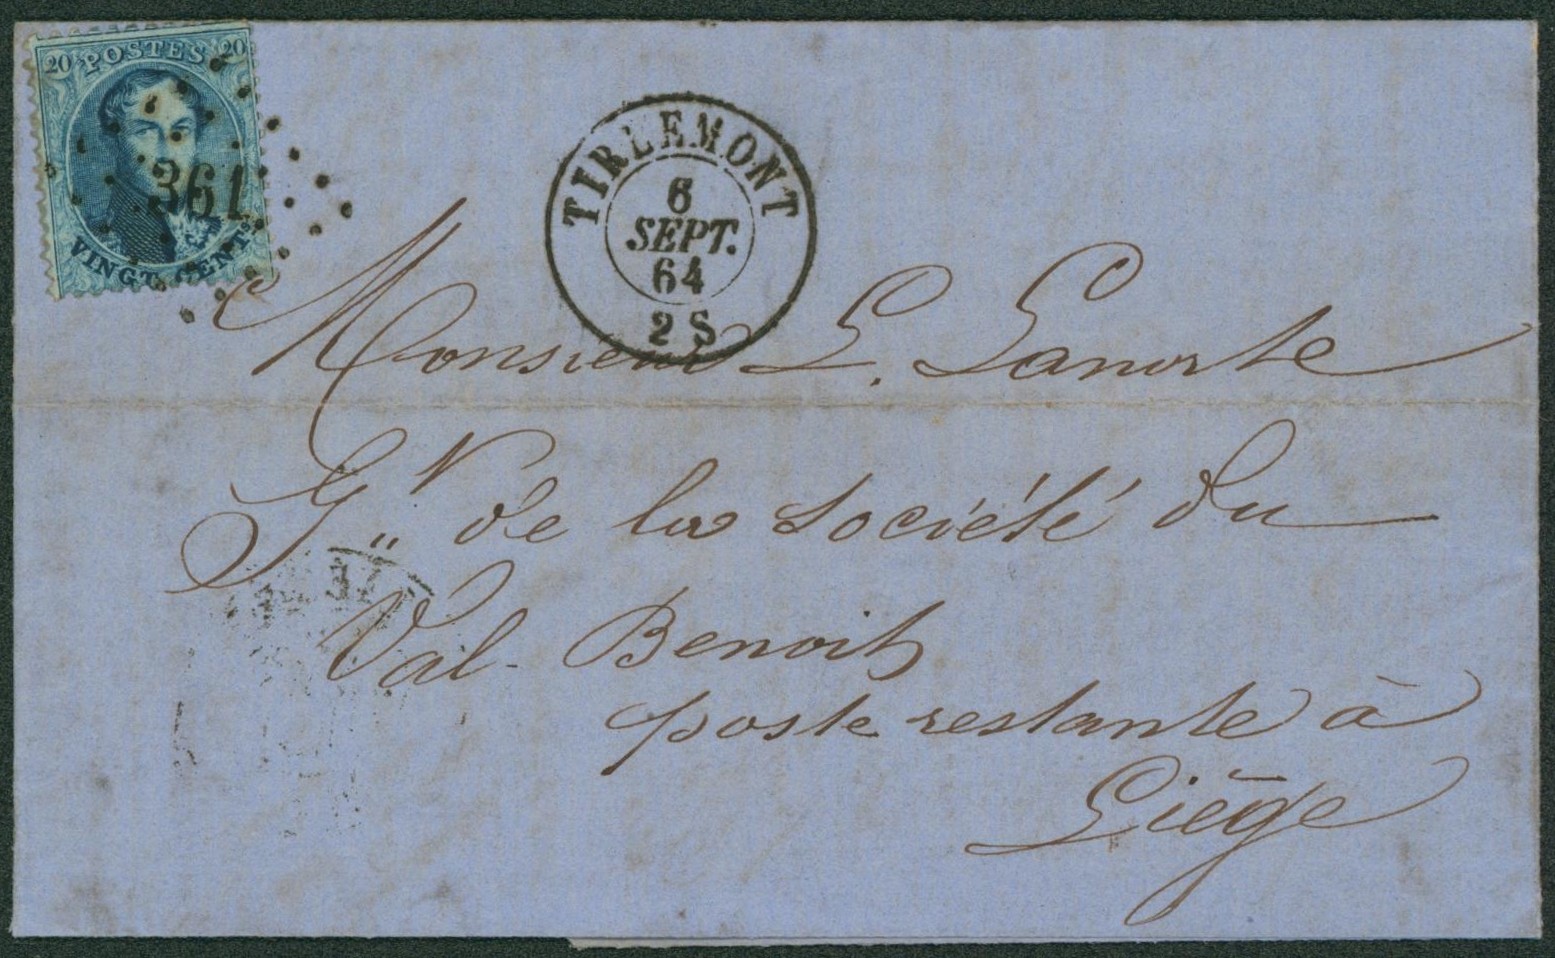 20 POSTES 20
361
VINGT CENTS
TIRLEMONT
6
SEPT.
64
2 S
Monsieur L. Lanorte
Gr de la société du
Val Benoit
poste restante à
Liége